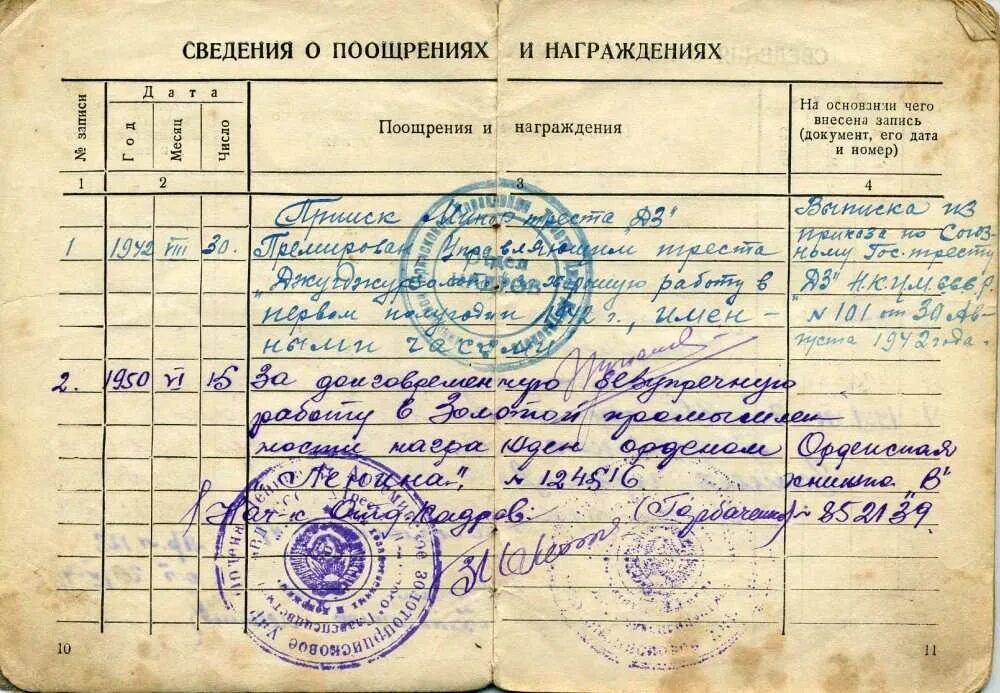 СВЕДЕНИЯ О ПООЩРЕНИЯХ И НАГРАЖДЕНИЯХ
№ записи
Дата
Год
Месяц
Число
Поощрения и награждения
На основании чего
внесена запись
(документ, его дата
и номер)
1 2 3 4
Прииск треста „ДЗ"
1 1942 VIII 30. Премирован Управляющим треста
„ хорошую работу в
первом полугодии 1942 г., имен-
ными часами
Выписка из
приказа по Союз-
ному Гос. тресту
„ДЗ" Н.К.Ц.М. СССР
N 101 от 30 Ав-
густа 1942 года.
ОТДЕЛ
КАДРОВ
2. 1950 VI 15 За долговременную безупречную
работу в Золотой промышлен
ности награжден орденом
„Ленина", N 124516
Орденская
книжка „В"
N 852139
Нач-к Отд. Кадров. (Горбаченко)
10
11